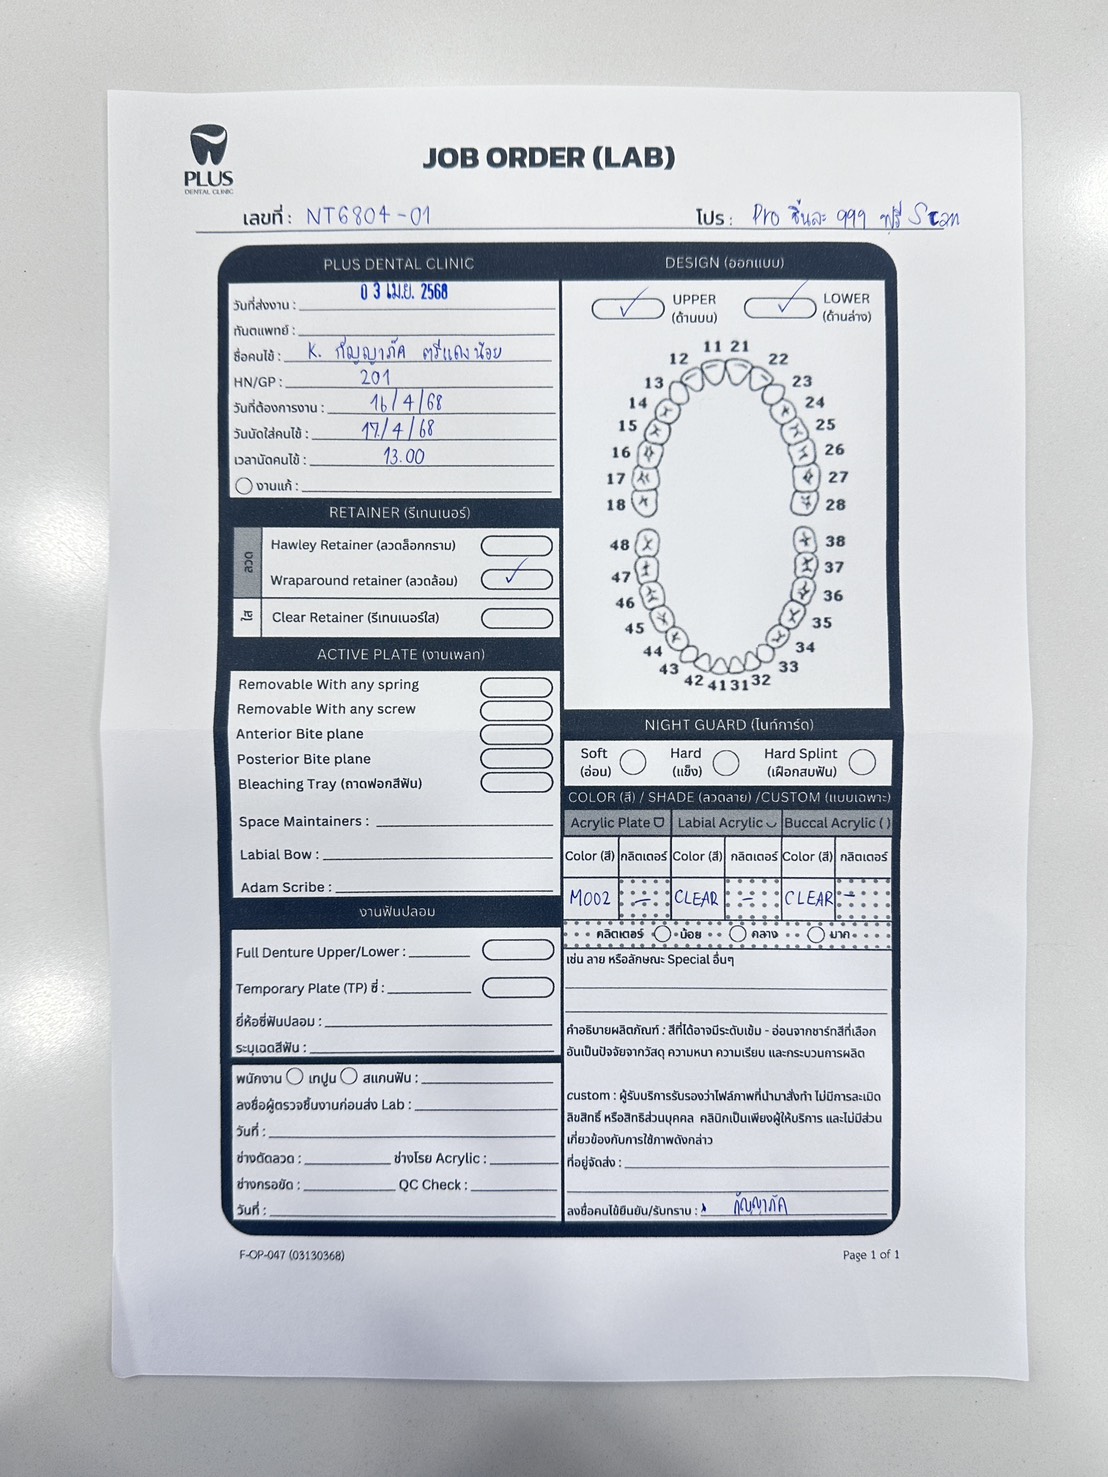 PLUS
DENTAL CLINIC
JOB ORDER (LAB)
เลขที่ : NT6804-01
โปร : Pro ชิ้นละ 999 ฟรี Scan
PLUS DENTAL CLINIC
วันที่ส่งงาน : 0 3 เม.ย. 2568
ทันตแพทย์ :
ชื่อคนไข้ : K. กัญญาภัค ตรีแดงน้อย
HN/GP : 201
วันที่ต้องการงาน : 16/4/68
วันนัดใส่คนไข้ : 17/4/68
เวลานัดคนไข้ : 13.00
งานแก้ :
RETAINER (รีเทนเนอร์)
ลวด
Hawley Retainer (ลวดล็อกกราม)
Wraparound retainer (ลวดล้อม)
ใส
Clear Retainer (รีเทนเนอร์ใส)
ACTIVE PLATE (งานเพลท)
Removable With any spring
Removable With any screw
Anterior Bite plane
Posterior Bite plane
Bleaching Tray (ถาดฟอกสีฟัน)
Space Maintainers :
Labial Bow :
Adam Scribe :
งานฟันปลอม
Full Denture Upper/Lower :
Temporary Plate (TP) ซี่ :
ยี่ห้อซี่ฟันปลอม :
ระบุเฉดสีฟัน :
พนักงาน เทปูน สแกนฟัน :
ลงชื่อผู้ตรวจชิ้นงานก่อนส่ง Lab :
วันที่ :
ช่างดัดลวด : ช่างโรย Acrylic :
ช่างกรอขัด : QC Check :
วันที่ :
DESIGN (ออกแบบ)
UPPER
(ด้านบน)
LOWER
(ด้านล่าง)
11 21
12 22
13 23
14 24
15 25
16 26
17 27
18 28
48 38
47 37
46 36
45 35
44 34
43 33
42 41 31 32
NIGHT GUARD (ไนท์การ์ด)
Soft
(อ่อน)
Hard
(แข็ง)
Hard Splint
(เฝือกสบฟัน)
COLOR (สี) / SHADE (ลวดลาย) /CUSTOM (แบบเฉพาะ)
Acrylic Plate Labial Acrylic Buccal Acrylic ( )
Color (สี) กลิตเตอร์ Color (สี) กลิตเตอร์ Color (สี) กลิตเตอร์
M002 - CLEAR - CLEAR -
กลิตเตอร์ น้อย กลาง มาก
เช่น ลาย หรือลักษณะ Special อื่นๆ
คำอธิบายผลิตภัณฑ์ : สีที่ได้อาจมีระดับเข้ม - อ่อนจากชาร์ทสีที่เลือก
อันเป็นปัจจัยจากวัสดุ ความหนา ความเรียบ และกระบวนการผลิต
custom : ผู้รับบริการรับรองว่าไฟล์ภาพที่นำมาสั่งทำ ไม่มีการละเมิด
ลิขสิทธิ์ หรือสิทธิส่วนบุคคล คลินิกเป็นเพียงผู้ให้บริการ และไม่มีส่วน
เกี่ยวข้องกับการใช้ภาพดังกล่าว
ที่อยู่จัดส่ง :
ลงชื่อคนไข้ยืนยัน/รับทราบ : กัญญาภัค
F-OP-047 (03130368)
Page 1 of 1